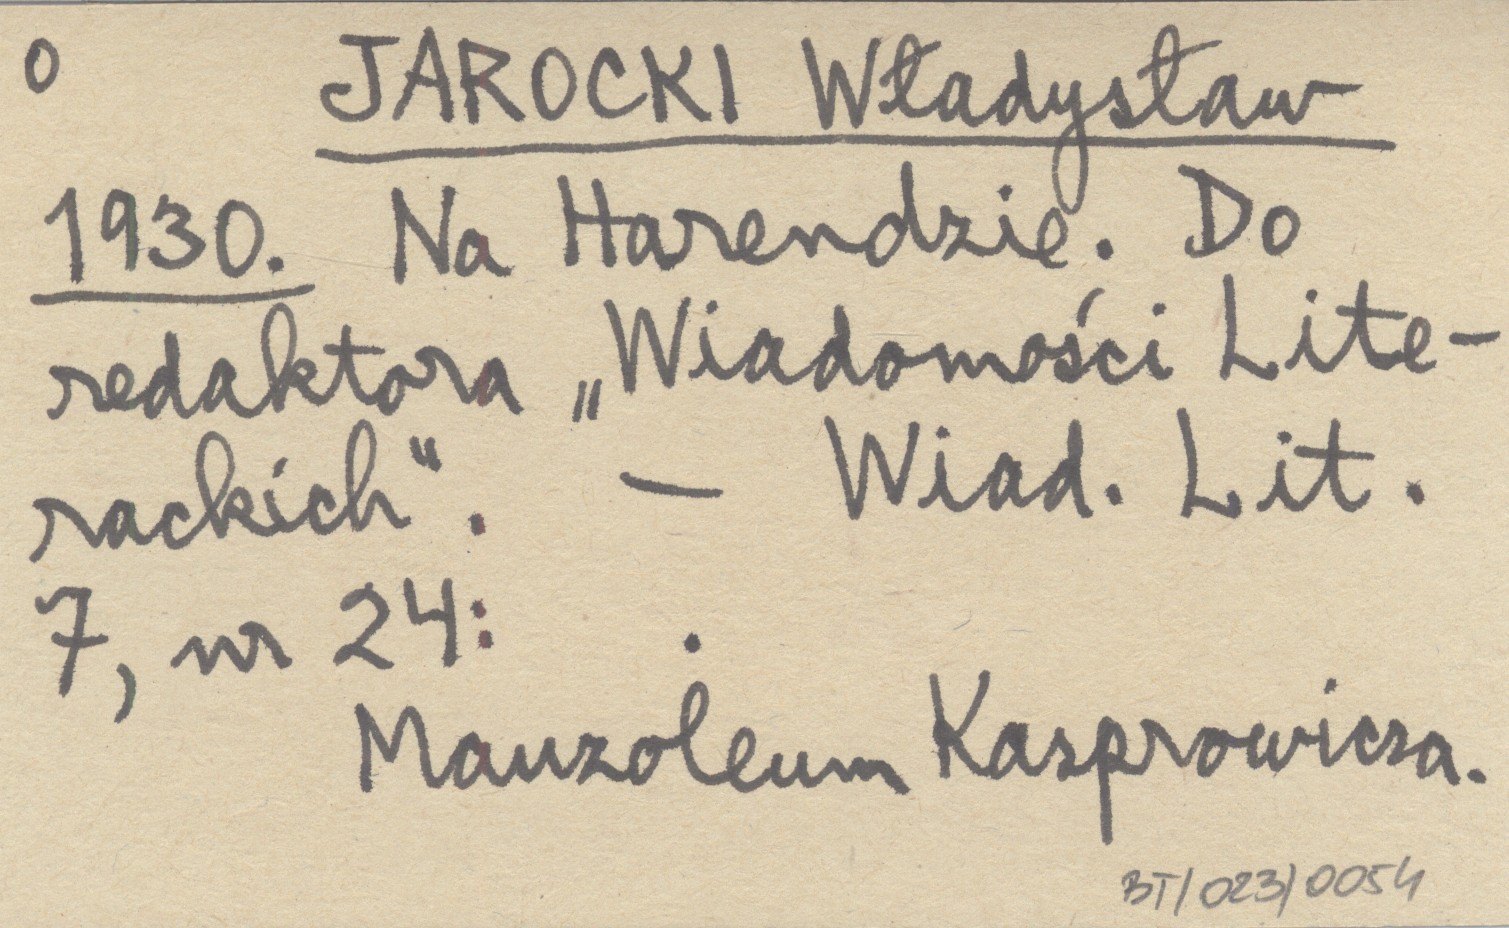 0 JAROCKI Władysław
1930. Na Harendzie. Do
redaktora „Wiadomości Lite-
rackich". — Wiad. Lit.
7, nr 24: .
Mauzoleum Kasprowicza.
BT/023/0054